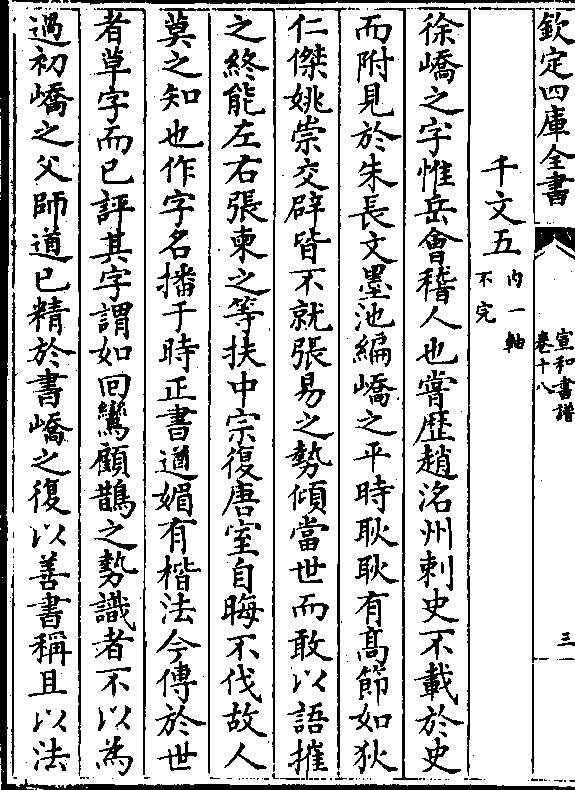 欽定四庫全書
宣和書譜
卷十八
三
千文五
內一軸
不完
徐嶠之字惟岳會稽人也嘗歷趙洺州刺史不載於史
而附見於朱長文墨池編嶠之平時耿耿有髙節如狄
仁傑姚崇交辟皆不就張易之勢傾當世而敢以語摧
之終能左右張柬之等扶中宗復唐室自晦不伐故人
莫之知也作字名播于時正書遒媚有楷法今傳於世
者草字而已評其字謂如回鸞顧鵲之勢識者不以為
過初嶠之父師道已精於書嶠之復以善書稱且以法